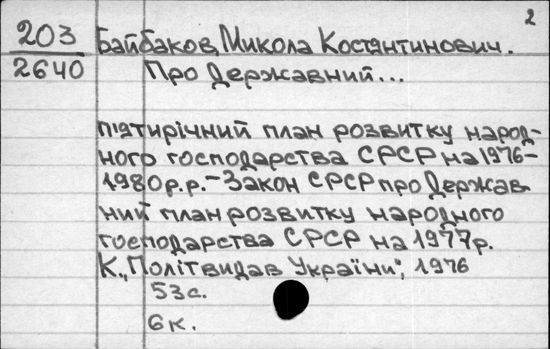 2
203 Байбаков, Микола Костянтинович.
2640 Про Державний...
п'ятирічний план розвитку народ-
ного господарства СРСР на 1976-
1980р.р. - Закон СРСР про Держав-
ний план розвитку народного
господарства СРСР на 1977р.
К., "Політвидав України", 1976
53с.
6к.